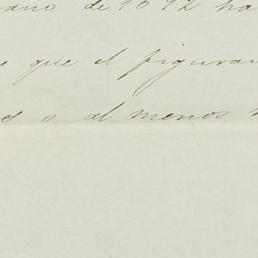 de 1892 ha
que el figurar
ó al menos